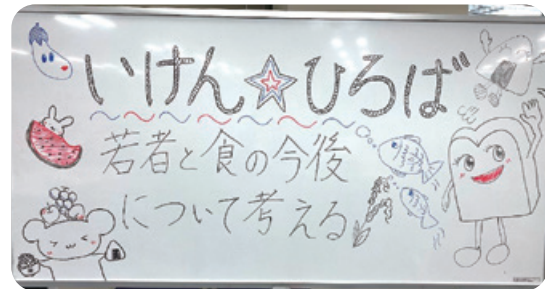 いけん☆ひろば
若者と食の今後
について考える